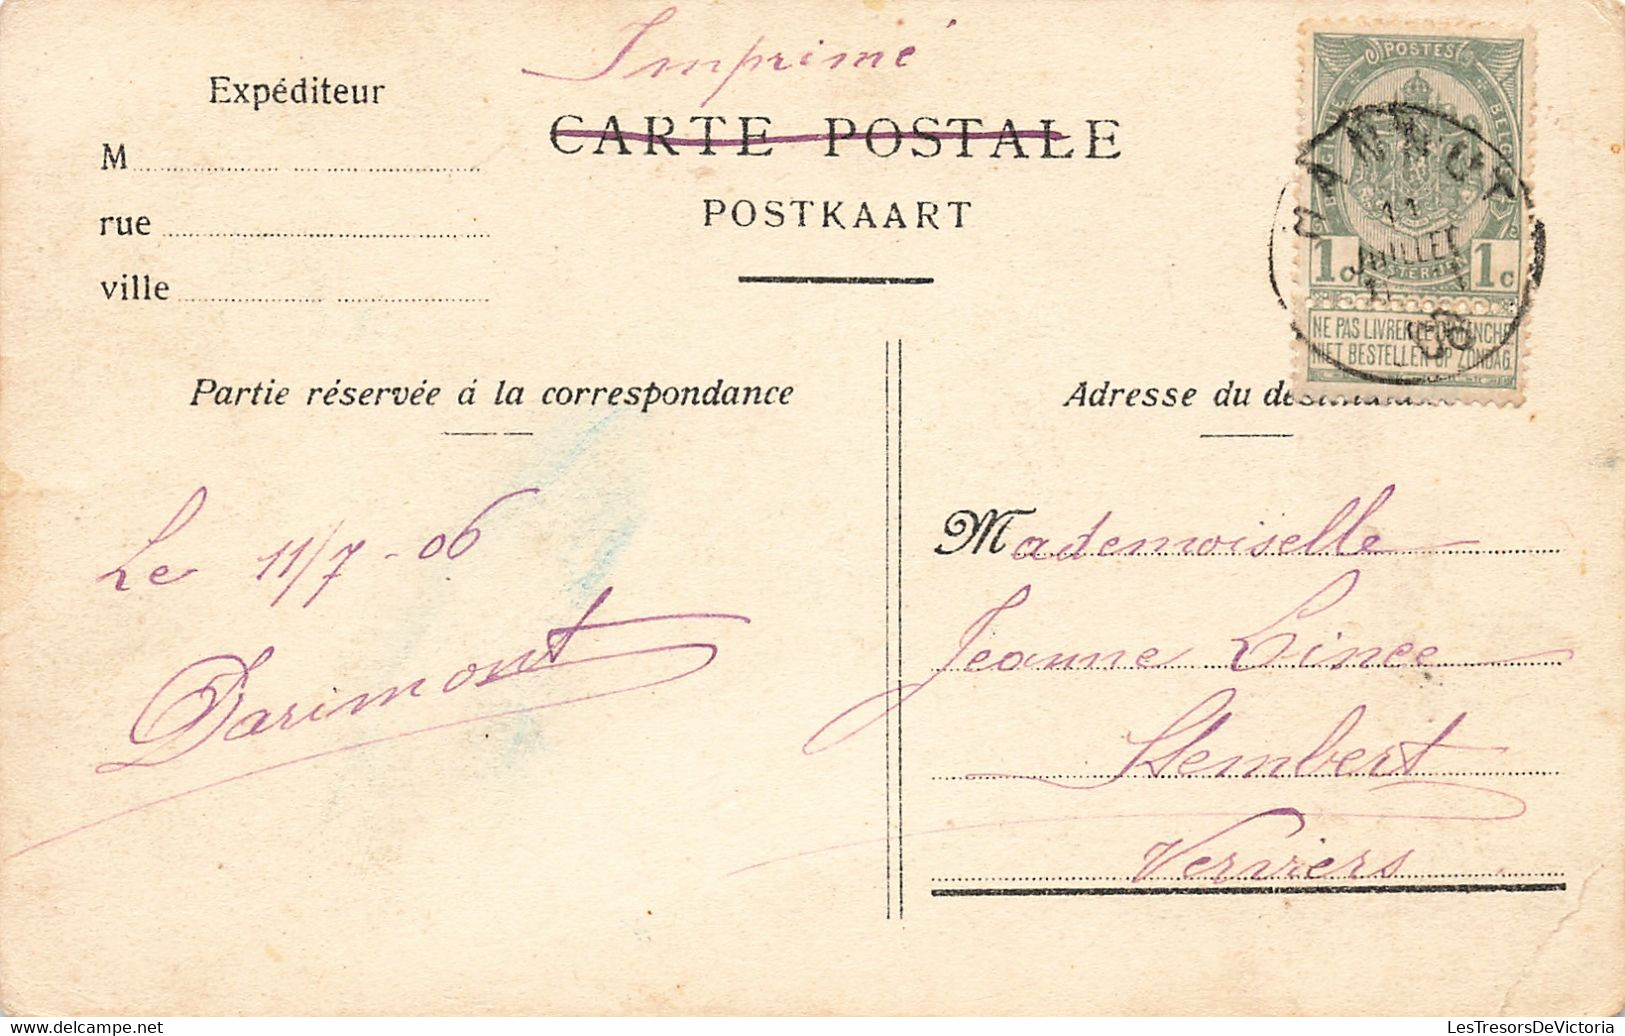 Imprimé
Expéditeur
CARTE POSTALE
M
POSTKAART
rue
ville
POSTES
BELGIQUE
BELGIË
HANNUT
11
JUILLET
06
1c 1c
NE PAS LIVRER LE DIMANCHE
NIET BESTELLEN OP ZONDAG
Partie réservée á la correspondance
Adresse du
Le 11/7-06
Darimont
Mademoiselle
Jeanne Lincé
Stembert
Verviers
LesTresorsDeVictoria
LesTresorsDeVictoria.com